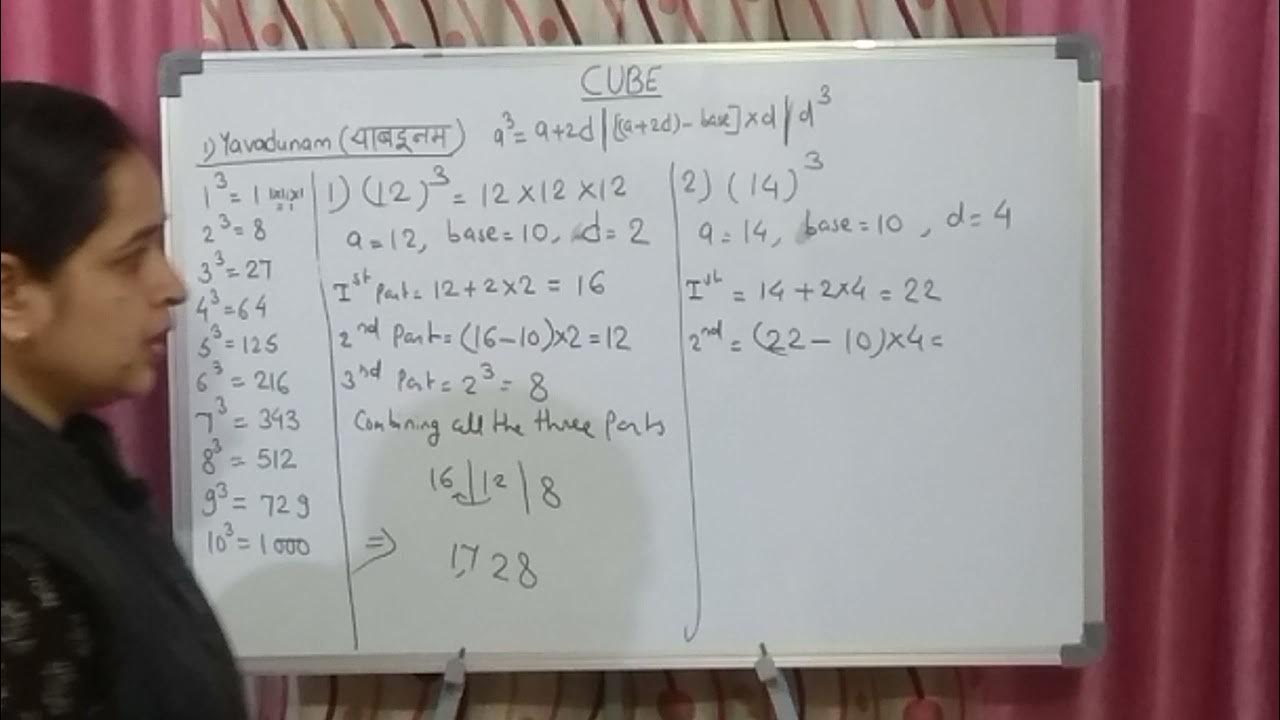 CUBE
1) Yavadunam (याबइनम) a³ = a+2d | [(a+2d) - base] × d / d³
1³ = 1
2³ = 8
3³ = 27
4³ = 64
5³ = 125
6³ = 216
7³ = 343
8³ = 512
9³ = 729
10³ = 1000
1) (12)³ = 12 × 12 × 12
a = 12, base = 10, d = 2
Iˢᵗ Part = 12 + 2 × 2 = 16
2ⁿᵈ Part = (16 - 10) × 2 = 12
3ⁿᵈ Part = 2³ = 8
Combining all the three Parts
16 | 12 | 8
⇒ 1,728
2) (14)³
a = 14, base = 10, d = 4
Iˢᵗ = 14 + 2×4 = 22
2ⁿᵈ = (22 - 10) × 4 =